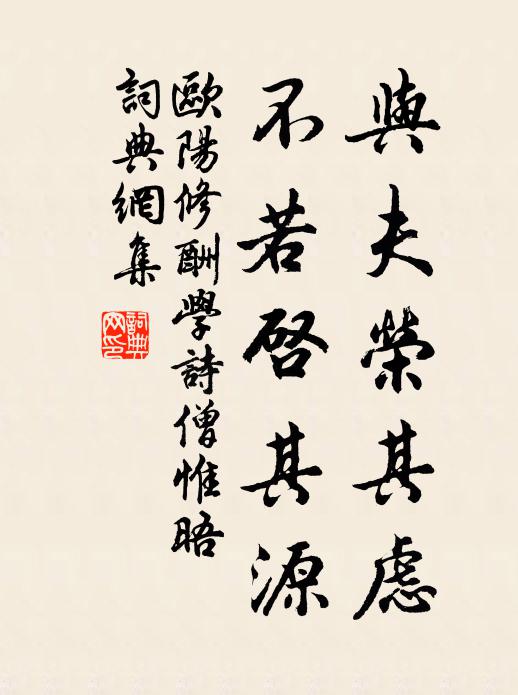 與夫榮其慮
不若啓其源
歐陽修酬學詩僧惟晤
詞典網集
詞典網印